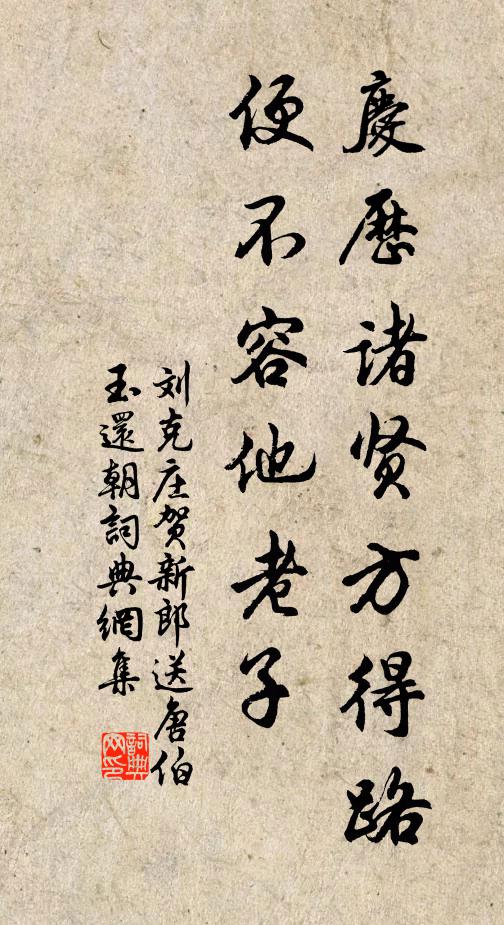 慶歷諸贤方得路
便不容他老子
刘克庄贺新郎送唐伯
玉還朝詞典網集
詞典
网印